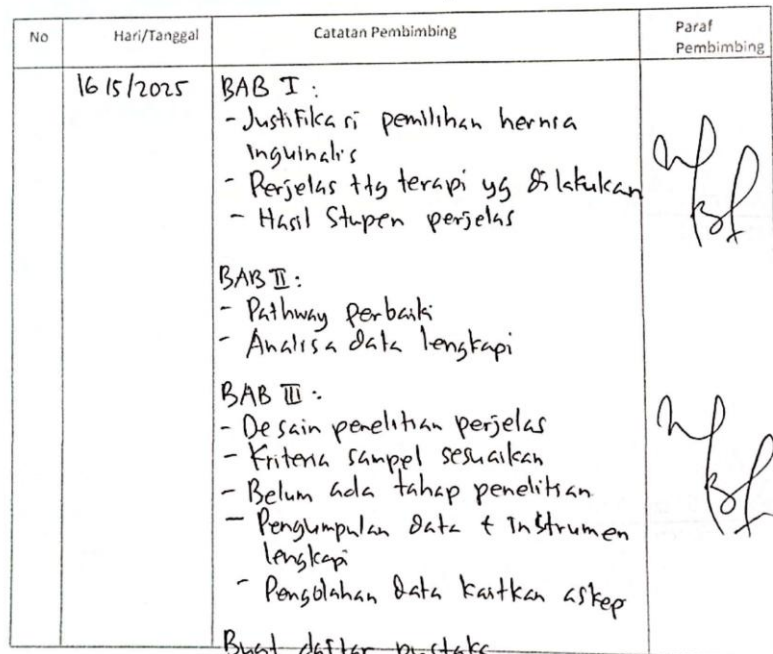 No Hari/Tanggal Catatan Pembimbing Paraf
Pembimbing
16/5/2025 BAB I :
- Justifikasi pemilihan hernia
Inguinalis
- Perjelas ttg terapi yg dilakukan
- Hasil Stupen perjelas
BAB II :
- Pathway perbaiki
- Analisa data lengkapi
BAB III :
- Desain penelitian perjelas
- Kriteria sampel sesuaikan
- Belum ada tahap penelitian
- Pengumpulan data + Instrumen
lengkapi
- Pengolahan data kaitkan askep
Buat daftar pustaka